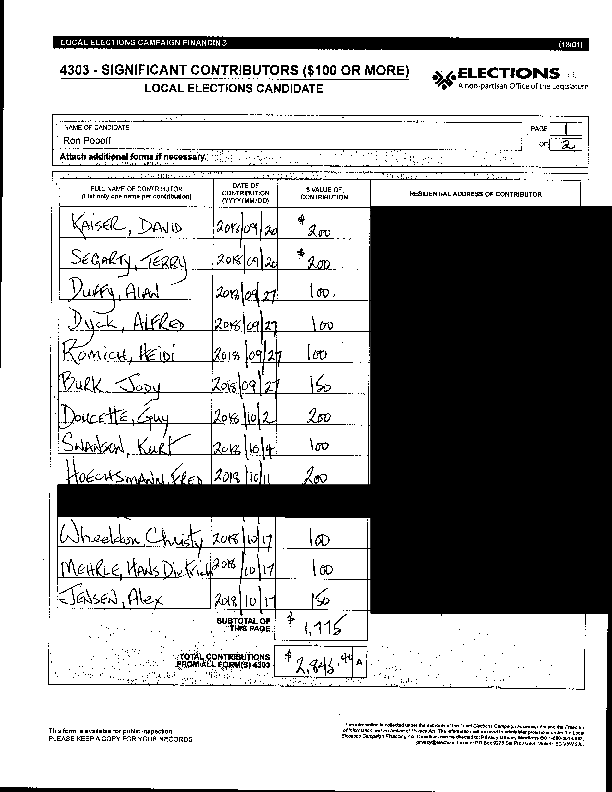 LOCAL ELECTIONS CAMPAIGN FINANCING (18/01)
4303 - SIGNIFICANT CONTRIBUTORS ($100 OR MORE)
LOCAL ELECTIONS CANDIDATE
ELECTIONS
A non-partisan Office of the Legislature
NAME OF CANDIDATE
Ron Popoff
PAGE 1
OF 2
Attach additional forms if necessary.
FULL NAME OF CONTRIBUTOR (List only one name per contribution) DATE OF CONTRIBUTION (YYYY/MM/DD) $ VALUE OF CONTRIBUTION RESIDENTIAL ADDRESS OF CONTRIBUTOR
KAISER, DAVID 2018/09/20 $ 200
SEGARTY, TERRY 2018/09/20 $ 200
DUFFY, ALAN 2018/09/27 100
Dyck, ALFRED 2018/09/27 100
ROMICH, HEIDI 2018/09/27 100
BURK Jody 2018/09/27 150
DOUCETTE, Guy 2018/10/2 200
SWANSON, KURT 2018/10/4 100
HOECHSMANN, FRED 2018/10/11 200
Wheeldon Christy 2018/10/17 100
MEHRLE, HANS Dietrich 2018/10/17 100
JENSEN, Alex 2018/10/17 150
SUBTOTAL OF THIS PAGE $
TOTAL CONTRIBUTIONS FROM ALL FORM(S) 4303 $ A
This form is available for public inspection.
PLEASE KEEP A COPY FOR YOUR RECORDS